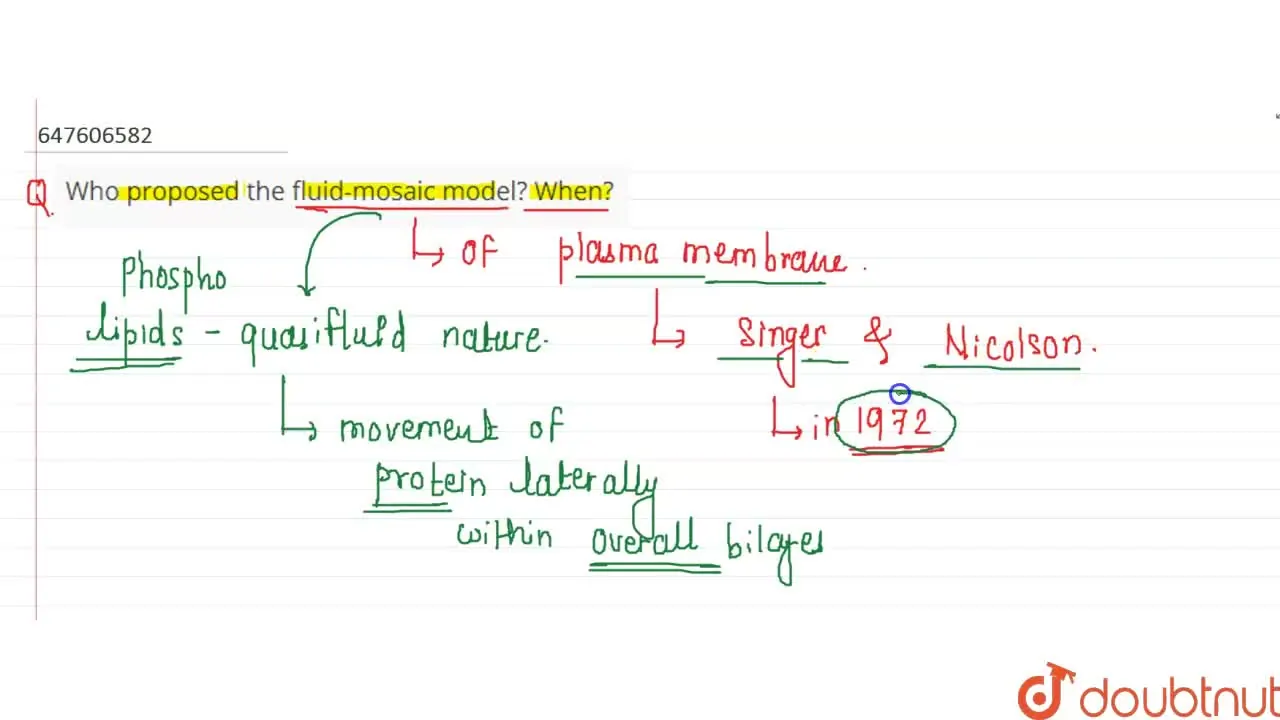 647606582
Q. Who proposed the fluid-mosaic model? When?
↳ of plasma membrane.
Phospho
lipids - quasifluid nature.
↳ Singer & Nicolson.
↳ movement of
↳ in 1972
protein laterally
within overall bilayer
doubtnut